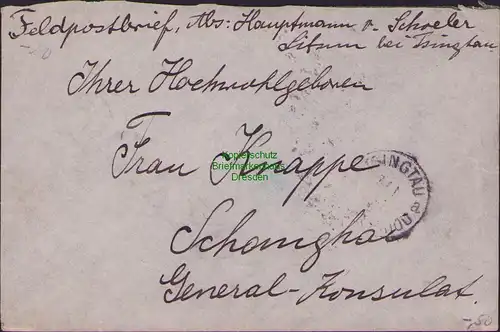 Feldpostbrief, Abs: Hauptmann v. Schoeler
Litsun bei Tsingtau
Ihrer Hochwohlgeboren
Frau Knappe
Kopierschutz
Briefmarkenhaus
Dresden
TSINGTAU
Schanghai
General-Konsulat.